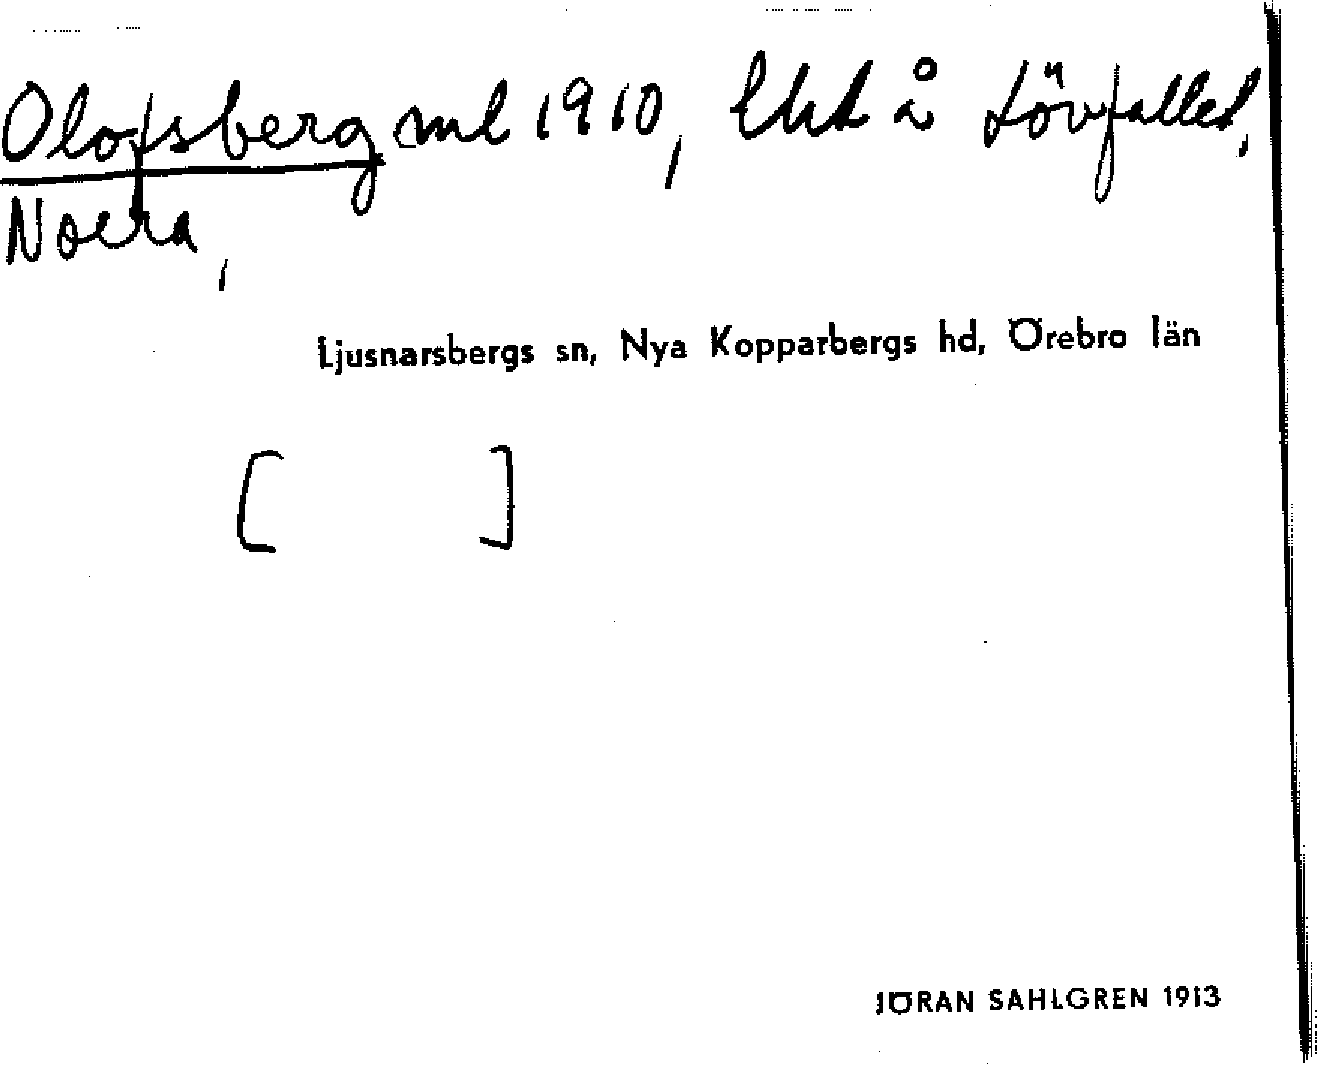 Olofsberg ml 1910, lht å Lövfallet,
Norra,
Ljusnarsbergs sn, Nya Kopparbergs hd, Örebro län
[ ]
JÖRAN SAHLGREN 1913